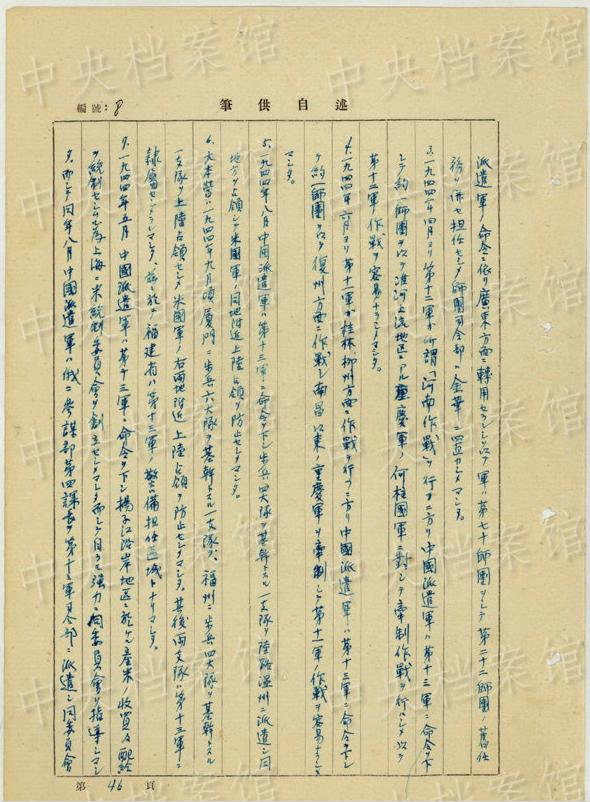 中央档案馆
述自供筆
編號：8
派遣軍ノ命令ニ依リ廣東方面ニ轉用セラレシ以テ軍ハ第七十師團ヲシテ第二十二師團ノ舊任
務ヲ併セ担任セシメ師團司令部ハ金華ニ置カシメマシタ。
3、一九四四年四月ヨリ第十二軍ガ所謂「河南作戰」ヲ行フニ方リ中國派遣軍ハ第十三軍ニ命令ヲ下
シテ約一師團ヲ以テ淮河上流地區ニアル重慶軍ノ何柱國軍ニ對シテ牽制作戰ヲ行ハシメ以テ
第十二軍ノ作戰ヲ容易ナラシメマシタ。
4、一九四四年六月ヨリ第十一軍ガ桂林柳州方面ニ作戰ヲ行フニ方リ中國派遣軍ハ第十三軍ニ命令ヲ下シ
テ約一師團ヲ以テ復州方面ニ作戰シ南昌以東ノ重慶軍ヲ牽制シテ第十一軍ノ作戰ヲ容易ナラシメ
マシタ。
5、一九四四年八月中國派遣軍ハ第十三軍ニ命令ヲ下シ歩兵四大隊ヲ基幹トスル一支隊ヲ陸路溫州ニ派遣シ同
地方ヲ占領シテ米國軍ノ同地附近上陸占領ヲ防止シマシタ。
6、大本營ハ一九四四年九月頃厦門ニ歩兵六大隊ヲ基幹トスル一支隊ヲ、福州ニ歩兵四大隊ヲ基幹トスル
一支隊ヲ上陸占領セシメ米國軍ノ右兩地附近上陸占領ヲ防止セシメマシタ。其後兩支隊ハ第十三軍ニ
隷屬セシメラレマシタ、茲ニ於テ福建省ハ第十三軍ノ警備担任區域トナリマシタ。
7、一九四四年五月中國派遣軍ハ第十三軍ニ命令ヲ下シ揚子江沿岸地區ニ於ケル產米ノ收買及配給
ヲ統制セシムル為上海ニ米統制委員會ヲ創立セシメマシタ而シテ自ラモ強力ニ同委員會ヲ指導シマシ
タ。而シテ同年八月中國派遣軍ハ俄ニ參謀部第四課長ヲ第十三軍司令部ニ派遣シ同委員會
第 46 頁